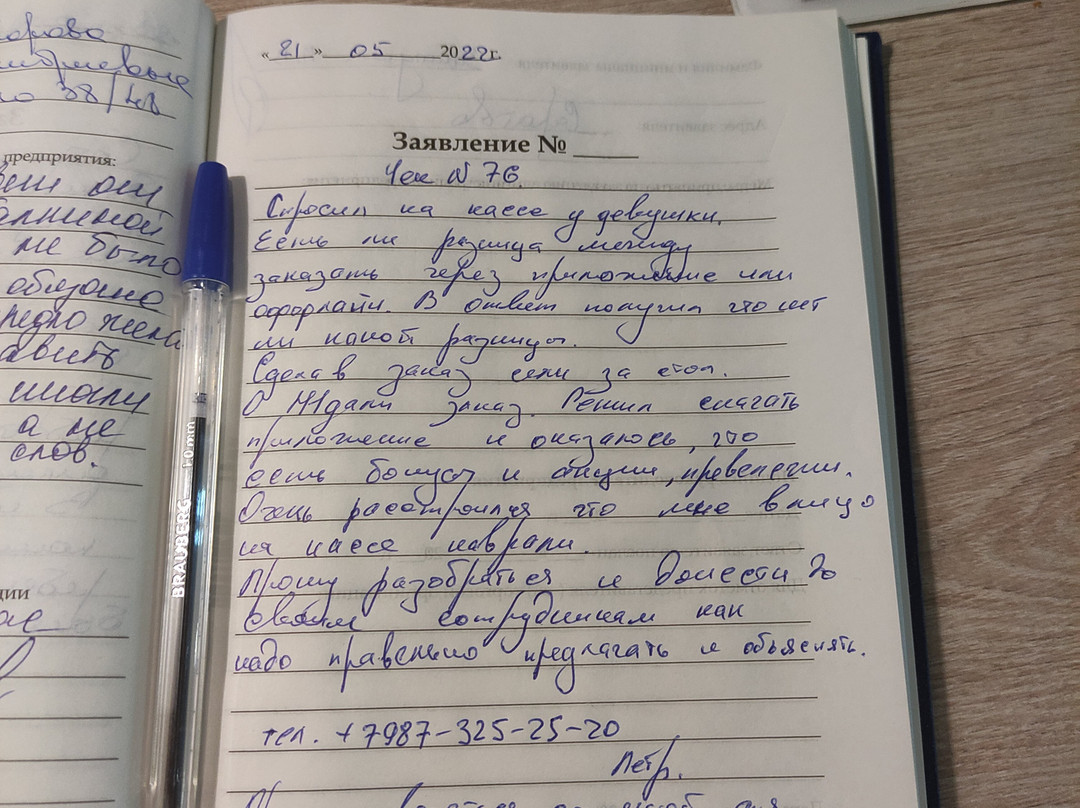 орова
но 38/
предприятия:
алниной
не было
обязана
авить
а не
слов.
ции
BRAUBERG 1.0 mm
« 21 » 05 2022г.
Заявление № ____
Чек N 76.
Спросил на кассе у девушки.
Есть ли разница между
заказать через приложение или
офорлайн. В ответ получил что нет
ни какой разницы.
Сделав заказ сели за стол.
Ждали заказ. Решил скачать
приложение и оказалось, что
есть бонусы и акции, превелегии.
Очень расстроился что мне в лицо
на кассе наврали.
Прошу разобраться и донести до
своим сотрудникам как
надо правельно предлагать и объяснять.
тел. +7987-325-25-20
Петр.